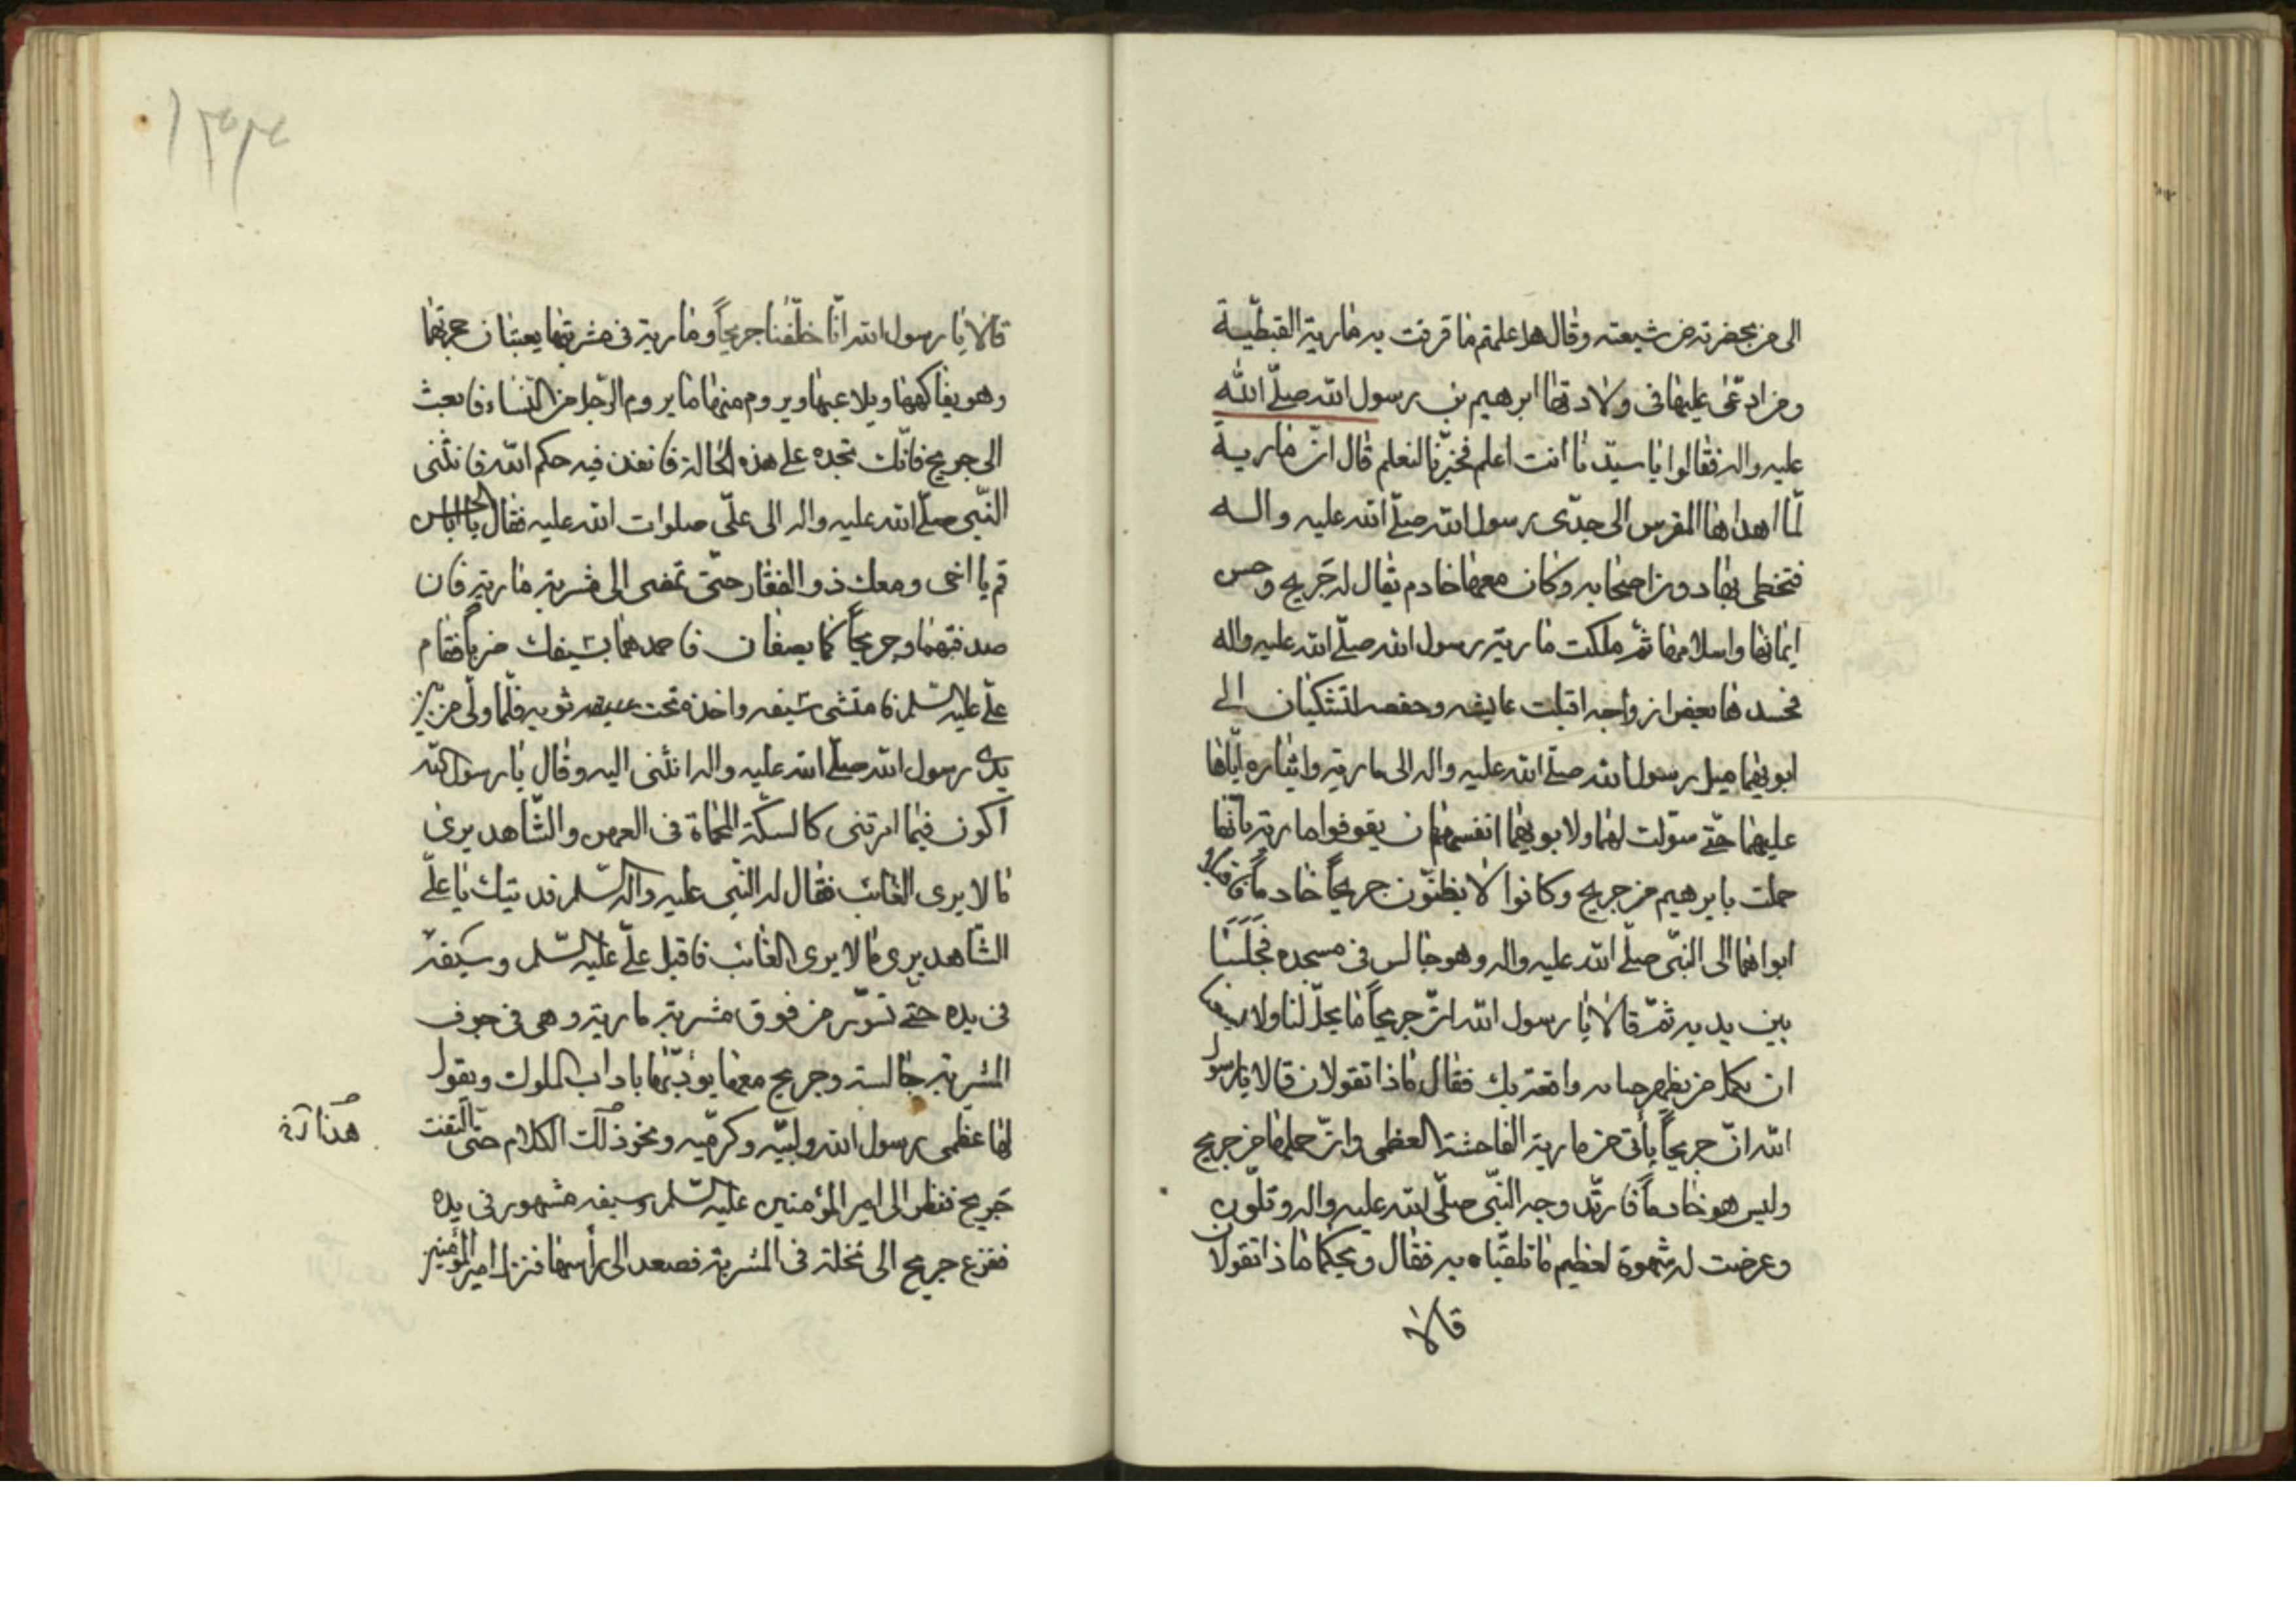 الى من بحضرته من شيعته وقال هل علمتم ما قرفت به مارية القبطية
وما ادعى عليها فى ولادتها ابرهيم بن رسول الله صلى الله
عليه واله فقالوا يا سيدنا انت اعلم فخبرنا لنعلم قال ان مارية
لما اهداها المقوس الى جدى رسول الله صلى الله عليه واله
فتحظى بها دون اصحابه وكان معها خادم يقال له جريح وحسن
ايمانها واسلامها ثم ملكت مارية رسول الله صلى الله عليه واله
فحسدها بعض ازواجه اقبلت عايشه وحفصه لتشكيان الى
ابويهما ميل رسول الله صلى الله عليه واله الى مارية وايثاره اياها
عليهما حتى سولت لهما ولابويهما انفسهما ان يقوفوا مارية بانها
حملت بابرهيم من جريح وكانوا لا يظنون جريحاً خادماً فاقبل
ابواهما الى النبى صلى الله عليه واله وهو جالس فى مسجده فجلسا
بين يديه ثم قالا يا رسول الله ان جريحاً ما يحل لنا ولا
ان نكمل من يظهر واقعة بك فقال ماذا تقولان قالا يا رسول
الله ان جريحاً يأتى من مارية الفاحشة العظمى وان حملها من جريح
وليس هو خادماً فاربد وجه النبى صلى الله عليه واله وتلون
وعرضت له سهوة لعظيم ما تلقياه به فقال ويحكما ماذا تقولان
قالا
قالا يا رسول الله انا خلفنا جريحاً ومارية فى مشربتها يعبثان
وهو يفاكهها ويلاعبها ويروم منها ما يروم الرجل من النساء فابعث
الى جريح فانك تجده على هذه الحالة فانفذ فيه حكم الله فانثنى
النبى صلى الله عليه واله الى على صلوات الله عليه فقال يا
قم يا اخى ومعك ذو الفقار حتى تمضى الى مشربة مارية فان
صدفتهما وجريحاً كما يصفان فاخمدهما بسيفك ضرباً فقام
على عليه السلم فامتشى سيفه واخذه تحت ثوبه فلما ولى من بين
يدى رسول الله صلى الله عليه واله انثنى اليه وقال يا رسول الله
اكون فيما امرتنى كالسكة المحماة فى العهن والشاهد يرى
ما لا يرى الغائب فقال له النبى عليه واله السلم فديتك يا على
الشاهد يرى ما لا يرى الغائب فاقبل على عليه السلم وسيفه
فى يده حتى تسور من فوق مشربة مارية وهى فى جوف
المشربة جالسة وجريح معها يؤدبها باداب الملوك ويقول
لها عظمى رسول الله ولبيه وكرميه ونحو ذلك الكلام حتى التفت
هذا
جريح فنظر الى امير المؤمنين عليه السلم وسيفه مشهور فى يده
ففزع جريح الى نخلة فى المشربة فصعد الى راسها فنزل امير المؤمنين